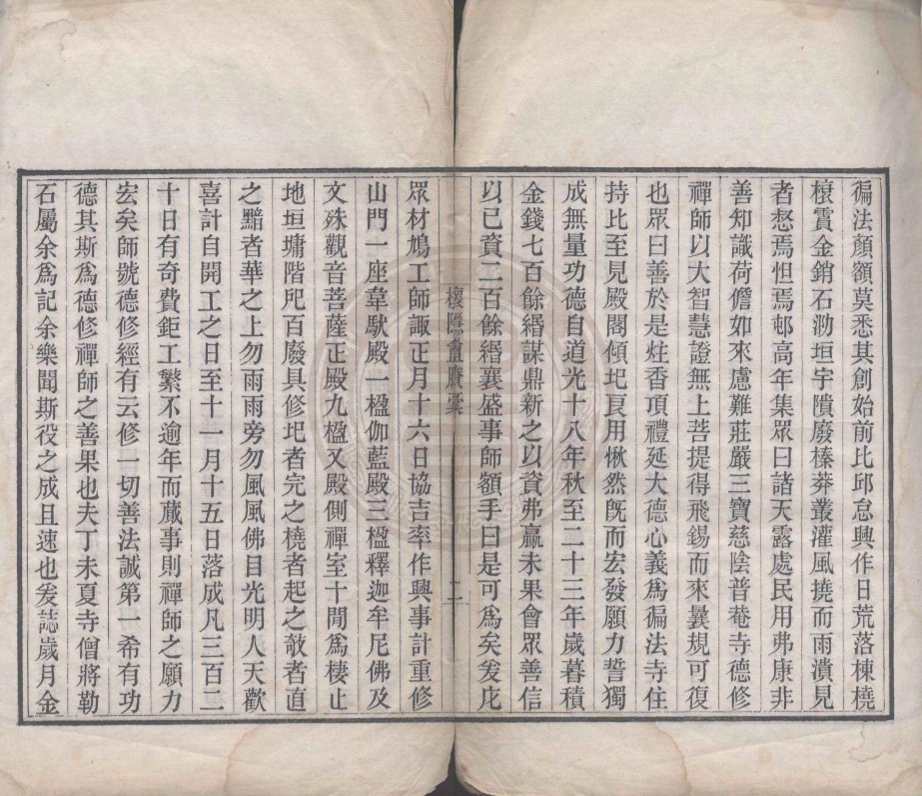 徧法顏額莫悉其創始前比邱怠興作日荒落棟橈
榱霣金銷石泐垣宇隤廢榛莽叢灌風撓而雨潰見
者惄焉怛焉邨高年集眾曰諸天露處民用弗康非
善知識荷儋如來慮難莊嚴三寶慈陰普菴寺德修
禪師以大智慧證無上菩提得飛錫而來曩規可復
也眾曰善於是炷香頂禮延大德心義爲徧法寺住
持比至見殿閣傾圯良用愀然旣而宏發願力誓獨
成無量功德自道光十八年秋至二十三年歲暮積
金錢七百餘緡謀鼎新之以資弗贏未果會眾善信
以已資二百餘緡襄盛事師額手曰是可爲矣爰庀
二
眾材鳩工師諏正月十六日協吉率作興事計重修
山門一座韋馱殿一楹伽藍殿三楹釋迦牟尼佛及
文殊觀音菩薩正殿九楹又殿側禪室十閒爲棲止
地垣墉階戺百廢具修圯者完之橈者起之攲者直
之黯者華之上勿雨雨旁勿風風佛目光明人天歡
喜計自開工之日至十一月十五日落成凡三百二
十日有奇費鉅工繁不逾年而蕆事則禪師之願力
宏矣師號德修經有云修一切善法誠第一希有功
德其斯爲德修禪師之善果也夫丁未夏寺僧將勒
石屬余爲記余樂聞斯役之成且速也爰誌歲月金